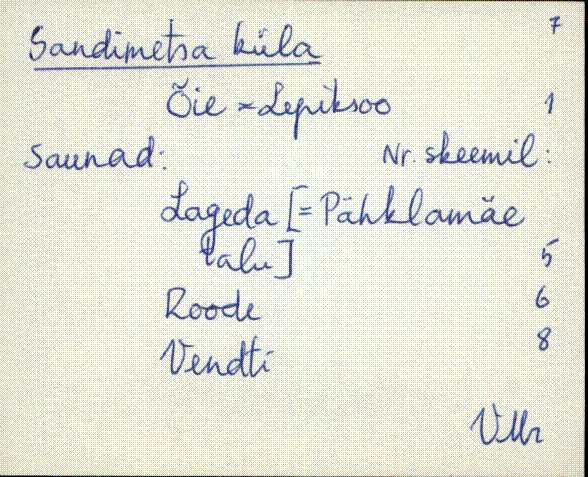 7
Sandimetsa küla
Õie ~ Lepiksoo 1
Saunad: Nr. skeemil:
Lageda [= Pähklamäe
talu] 5
Roode 6
Vendti 8
VMr